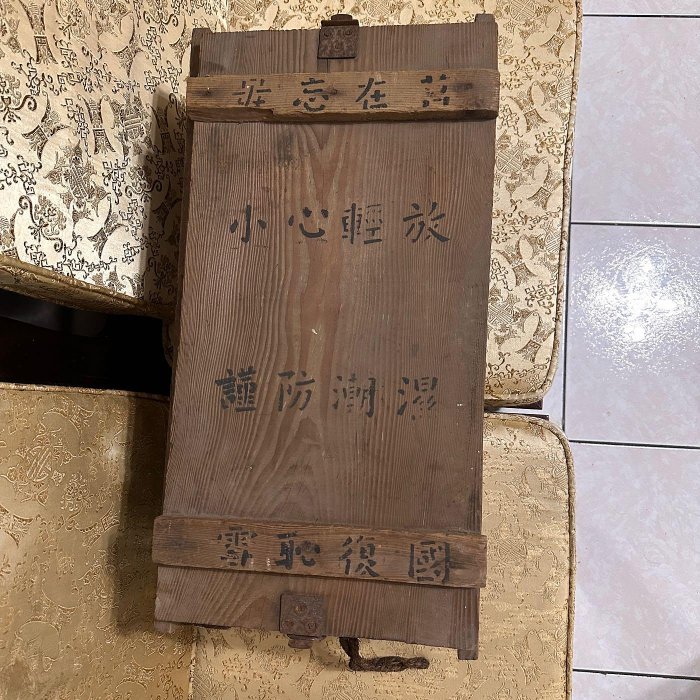 毋忘在莒
小心輕放
謹防潮濕
雪恥復國